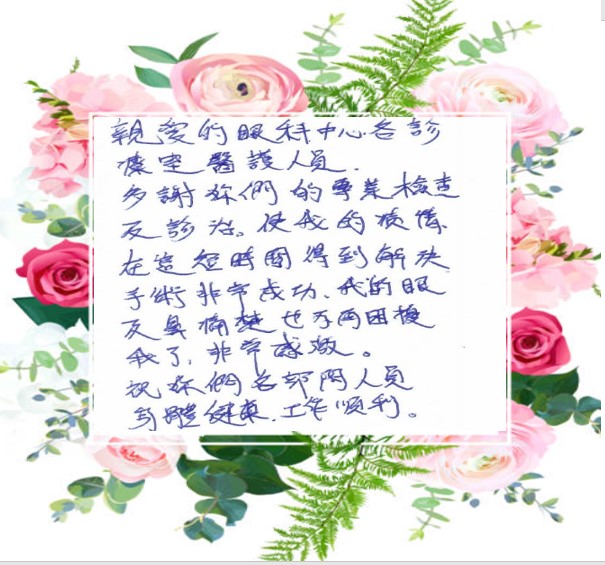 親愛的眼科中心各診
療室醫護人員.
多謝你們的專業檢查
及診治。使我的病情,
在這短時間得到解決
手術非常成功. 我的眼
及鼻痛楚也不再困擾
我了, 非常感激。
祝你們各部門人員
身體健康. 工作順利。